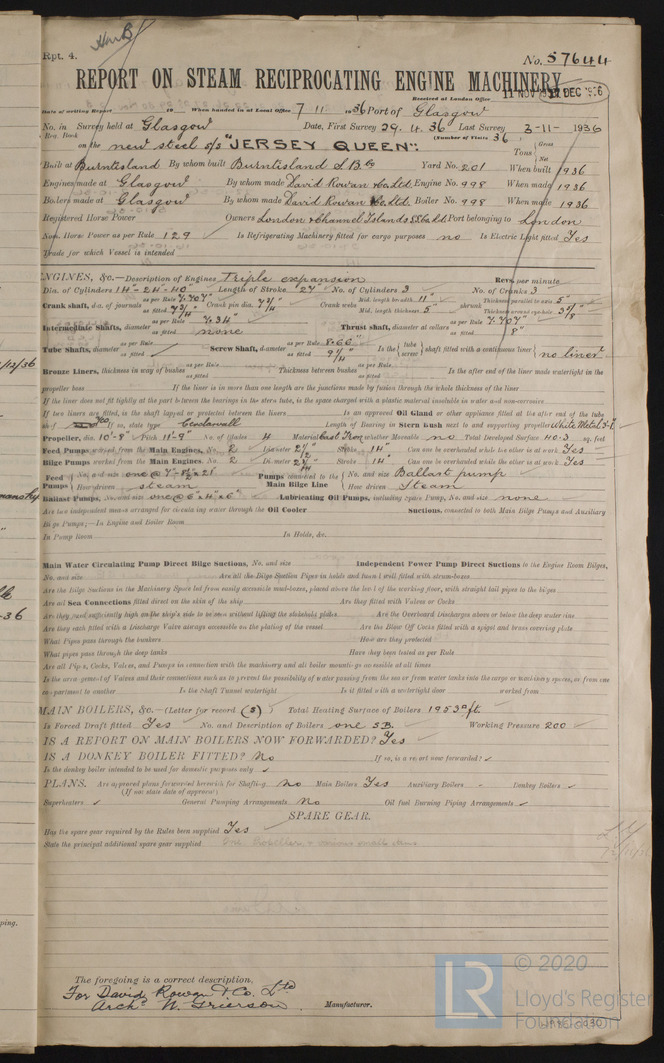 Rpt. 4.
No. 57644
REPORT ON STEAM RECIPROCATING ENGINE MACHINERY.
Received at London Office
Date of writing Report 19 When handed in at Local Office 7 11 1936 Port of Glasgow
No. in Survey held at Glasgow Date, First Survey 29. 4. 36 Last Survey 3-11- 1936
Reg. Book (Number of Visits 36)
on the new steel s/s "JERSEY QUEEN": Tons Gross Net
Built at Burntisland By whom built Burntisland S.B. Co Yard No. 201 When built 1936
Engines made at Glasgow By whom made David Rowan & Co. Ltd. Engine No. 998 When made 1936
Boilers made at Glasgow By whom made David Rowan & Co. Ltd. Boiler No. 998 When made 1936
Registered Horse Power Owners London & Channel Islands S.S. Co. Ltd. Port belonging to London
Nom. Horse Power as per Rule 129 Is Refrigerating Machinery fitted for cargo purposes no Is Electric Light fitted Yes
Trade for which Vessel is intended
ENGINES, &c.—Description of Engines Triple expansion Revs. per minute
Dia. of Cylinders 14"-24"-40" Length of Stroke 27" No. of Cylinders 3 No. of Cranks 3
Crank shaft, dia. of journals as per Rule 7.707" as fitted 7 3/4" Crank pin dia. 7 3/4" Crank webs Mid. length breadth 11" Mid. length thickness 5" shrunk Thickness parallel to axis 5" Thickness around eye-hole 3 7/8"
Intermediate Shafts, diameter as per Rule 7.34" as fitted none Thrust shaft, diameter at collars as per Rule 7.707" as fitted 8"
Tube Shafts, diameter as per Rule as fitted Screw Shaft, diameter as per Rule 8.66" as fitted 9 1/4" Is the tube screw shaft fitted with a continuous liner no liner
Bronze Liners, thickness in way of bushes as per Rule as fitted Thickness between bushes as per Rule as fitted Is the after end of the liner made watertight in the
propeller boss If the liner is in more than one length are the junctions made by fusion through the whole thickness of the liner
If the liner does not fit tightly at the part between the bearings in the stern tube, is the space charged with a plastic material insoluble in water and non-corrosive
If two liners are fitted, is the shaft lapped or protected between the liners Is an approved Oil Gland or other appliance fitted at the after end of the tube
shaft Yes If so, state type Cedervall Length of Bearing in Stern Bush next to and supporting propeller White Metal
Propeller, dia. 10'-8" Pitch 11'-9" No. of blades 4 Material Cast Iron whether Moveable no Total Developed Surface 40.3 sq. feet
Feed Pumps worked from the Main Engines, No. 2 Diameter 2 1/2" Stroke 14" Can one be overhauled while the other is at work Yes
Bilge Pumps worked from the Main Engines, No. 2 Diameter 2 3/4" Stroke 14" Can one be overhauled while the other is at work Yes
Feed Pumps No. and size one @ How driven steam Pumps connected to the Main Bilge Line No. and size Ballast pump How driven Steam
Ballast Pumps, No. and size one @ 6"x4"x6" Lubricating Oil Pumps, including Spare Pump, No. and size none
Are two independent means arranged for circulating water through the Oil Cooler Suctions, connected to both Main Bilge Pumps and Auxiliary
Bilge Pumps;—In Engine and Boiler Room
In Pump Room In Holds, &c.
Main Water Circulating Pump Direct Bilge Suctions, No. and size Independent Power Pump Direct Suctions to the Engine Room Bilges,
No. and size Are all the Bilge Suction Pipes in holds and tunnel well fitted with strum-boxes
Are the Bilge Suctions in the Machinery Space led from easily accessible mud-boxes, placed above the level of the working floor, with straight tail pipes to the bilges
Are all Sea Connections fitted direct on the skin of the ship Are they fitted with Valves or Cocks
Are they fixed sufficiently high on the ship's side to be seen without lifting the stokehold plates Are the Overboard Discharges above or below the deep water line
Are they each fitted with a Discharge Valve always accessible on the plating of the vessel Are the Blow Off Cocks fitted with a spigot and brass covering plate
What Pipes pass through the bunkers How are they protected
What pipes pass through the deep tanks Have they been tested as per Rule
Are all Pipes, Cocks, Valves, and Pumps in connection with the machinery and all boiler mountings accessible at all times
Is the arrangement of Valves and their connections such as to prevent the possibility of water passing from the sea or from water tanks into the cargo or machinery spaces, or from one
compartment to another Is the Shaft Tunnel watertight Is it fitted with a watertight door worked from
MAIN BOILERS, &c.—(Letter for record (S)) Total Heating Surface of Boilers 1953 □ ft.
Is Forced Draft fitted Yes No. and Description of Boilers one S.B. Working Pressure 200
IS A REPORT ON MAIN BOILERS NOW FORWARDED? Yes
IS A DONKEY BOILER FITTED? No If so, is a report now forwarded?
Is the donkey boiler intended to be used for domestic purposes only
PLANS. Are approved plans forwarded herewith for Shafting No Main Boilers Yes Auxiliary Boilers - Donkey Boilers
(If not state date of approval)
Superheaters General Pumping Arrangements No Oil fuel Burning Piping Arrangements
SPARE GEAR.
Has the spare gear required by the Rules been supplied Yes
State the principal additional spare gear supplied One Propeller, & various small items
The foregoing is a correct description.
For David Rowan & Co. Ltd
Archd W. Grierson. Manufacturer.
© 2020
LR
Lloyd's Register
Foundation